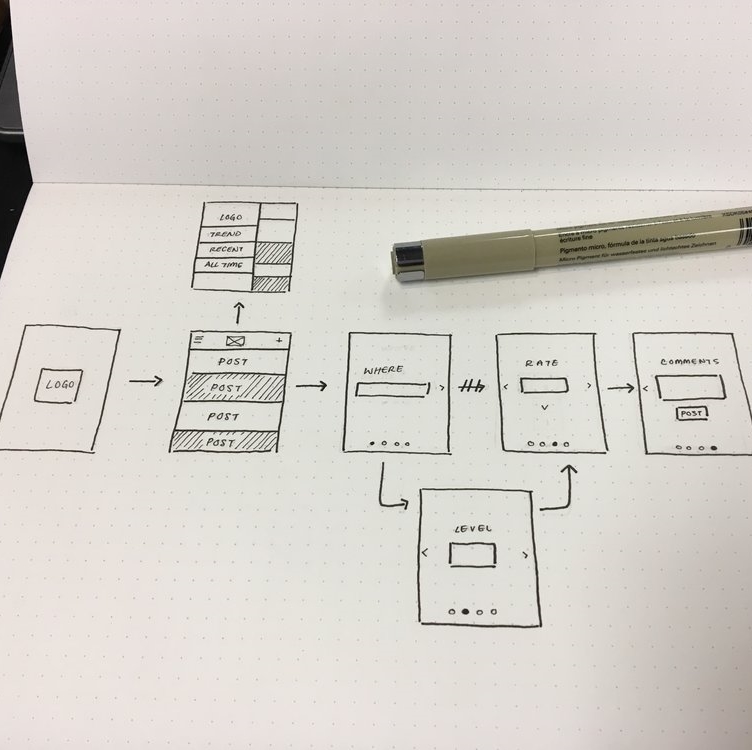 LOGO
TREND
RECENT
ALL TIME
LOGO
POST
POST
POST
POST
WHERE
RATE
COMMENTS
POST
LEVEL
écriture fine
Pigmento micro, fórmula de la tinta agua
Micro-Pigment für wasserfestes und lichtechtes Zeichnen